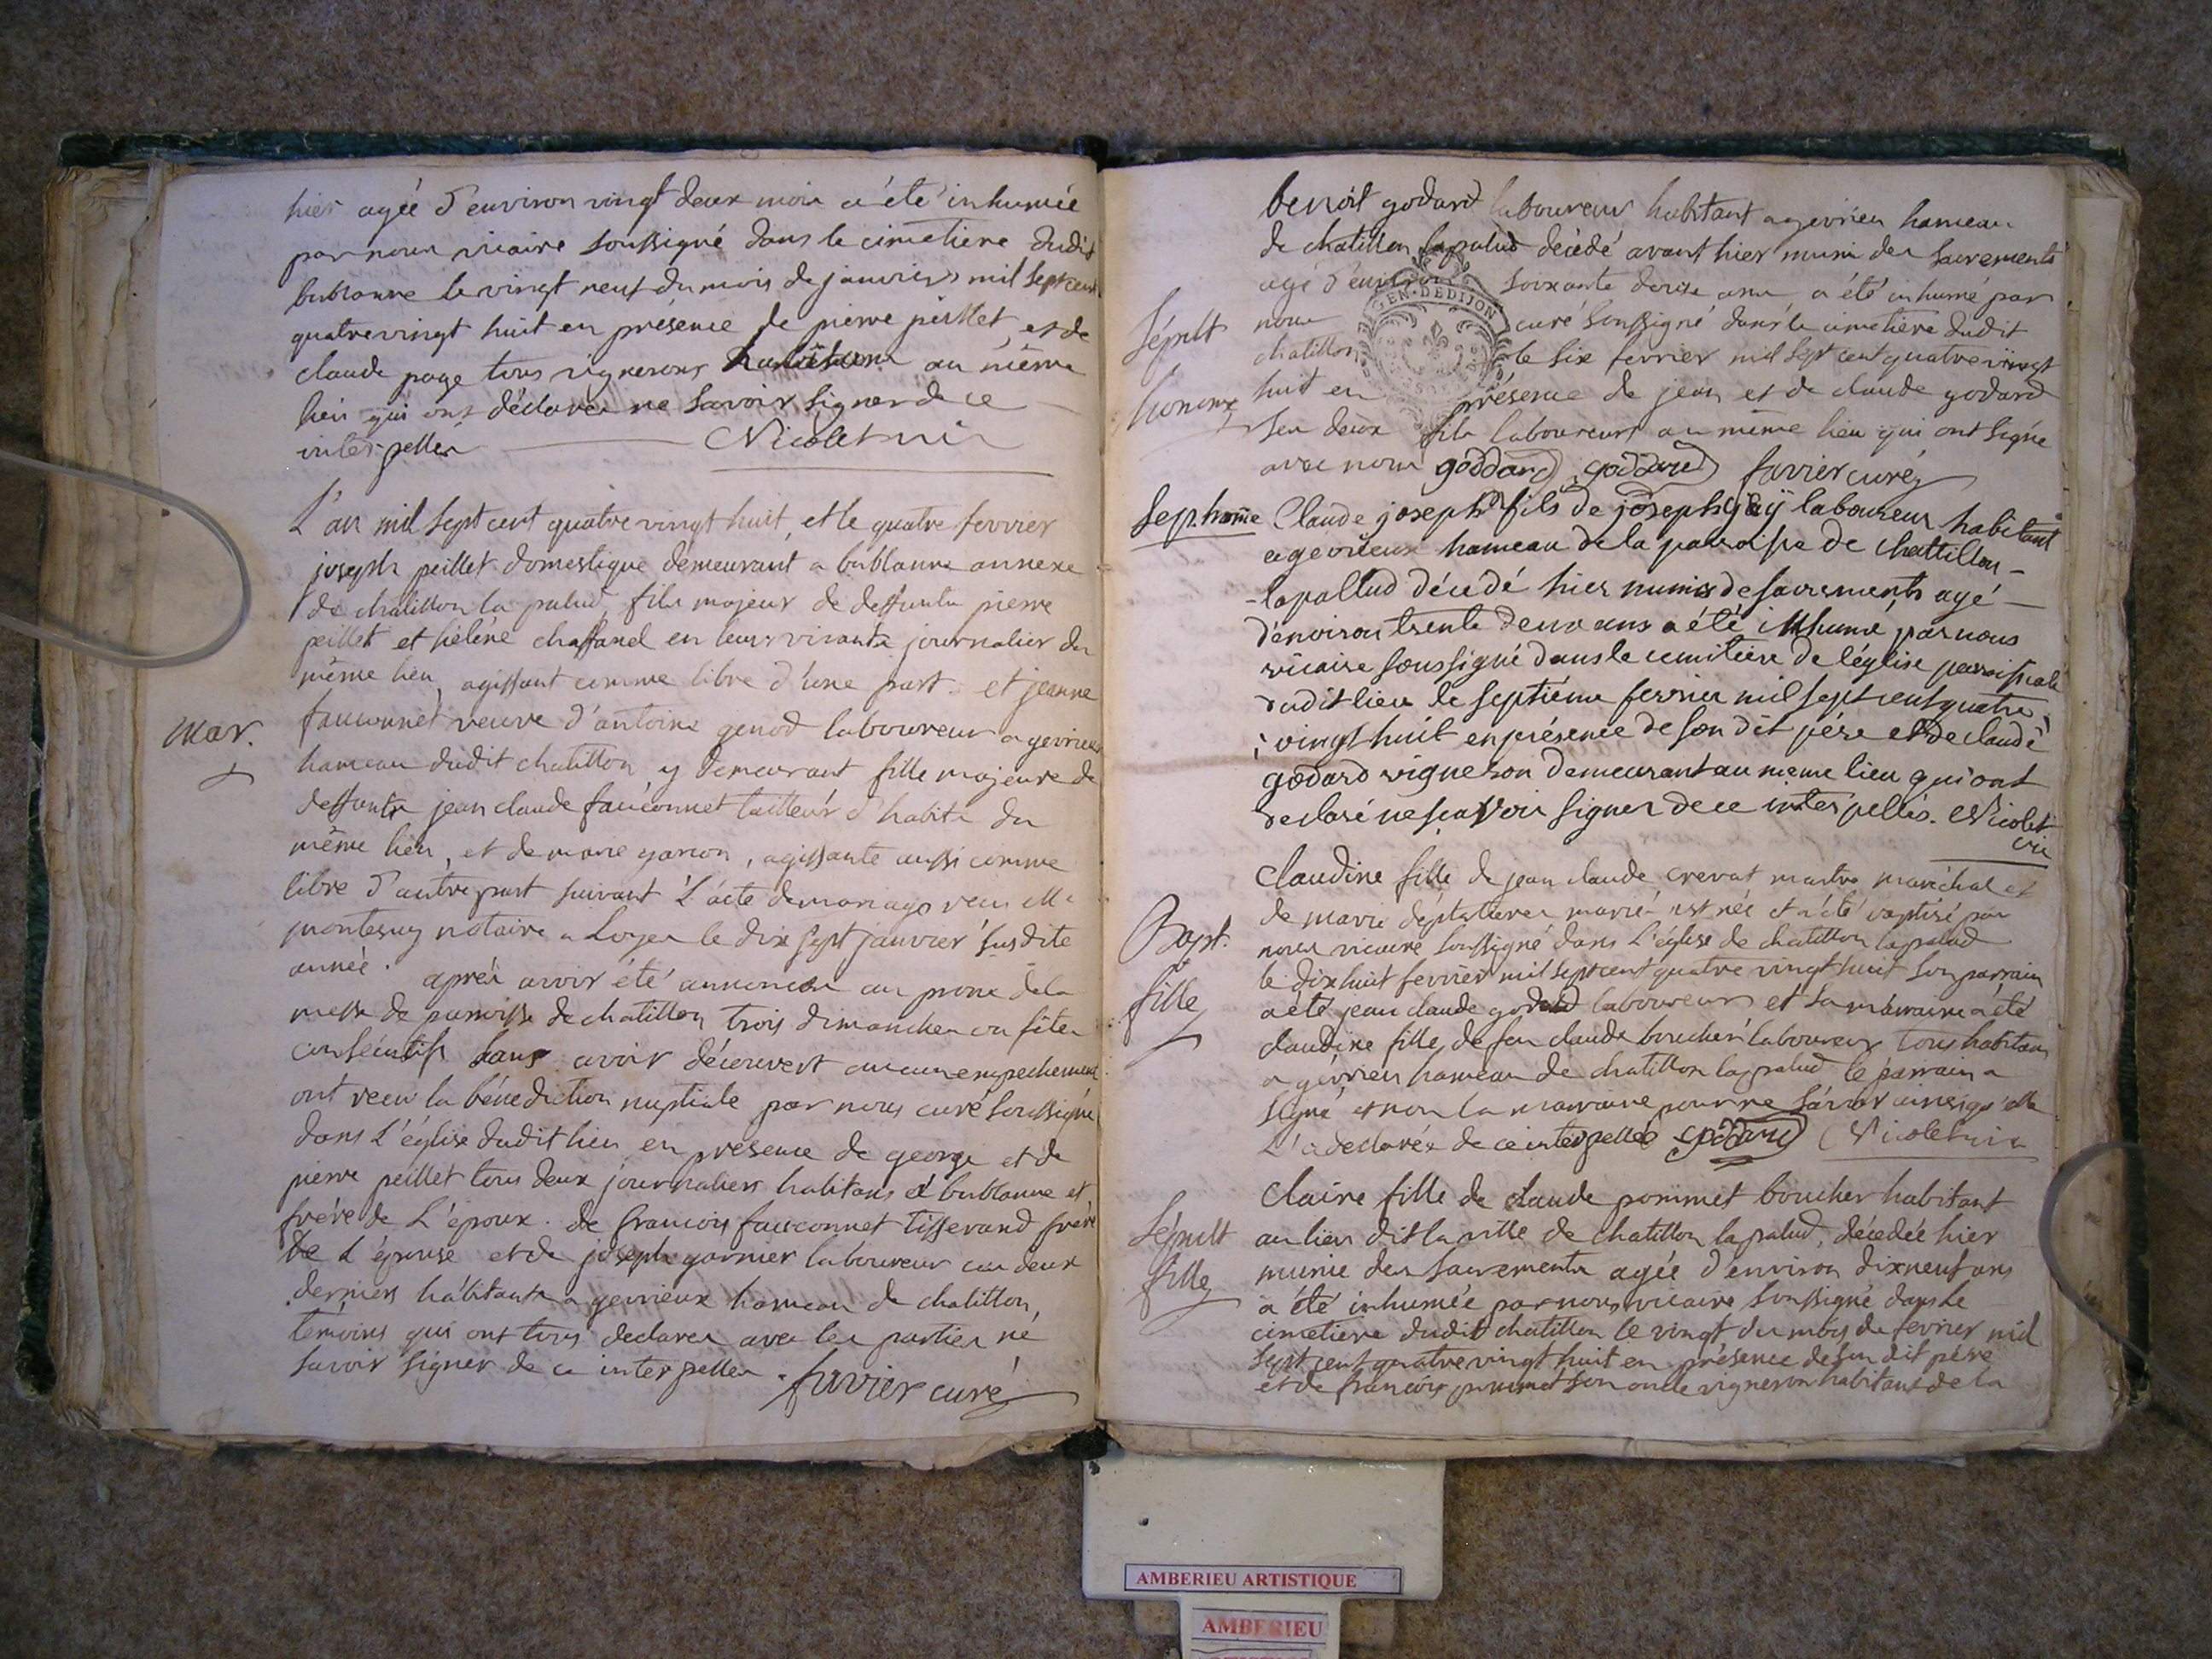 hier agée d'environ vingt deux mois a été inhumée
par nous vicaire soussigné dans le cimetiere dudit
bublanne le vingt neuf du mois de janvier mil sept cent
quatrevingt huit en présence de pierre peillet et de
claude page tous vignerons au même
lieu qui ont déclarés ne savoir signer de ce
interpellés Nicolet vic
L'an mil sept cent quatre vingt huit, et le quatre fevrier
joseph peillet domestique demeurant a bublanne annexe
de chatillon la palud, fils majeur de deffunts pierre
peillet et héléne chaffanel en leurs vivants journalier du
même lieu, agissant comme libre d'une part. et jeanne
fauconnet veuve d'antoine genod laboureur a gevrieux
mar.
hameau dudit chatillon y demeurant fille majeure de
deffunts jean claude fauconnet tailleur d'habits du
même lieu, et de marie garion, agissante aussi comme
libre d'autre part suivant l'acte de mariage recu Me
montesuy notaire a Loyes le dix sept janvier susdite
année. aprés avoir été annoncés au prone de la
messe de paroisse de chatillon trois dimanches ou fêtes
consécutifs sans avoir découvert aucun empechement
ont recu la bénediction nuptiale par nous curé soussigné
dans l'église dudit lieu en présence de george et de
pierre peillet tous deux journaliers habitans a bublanne et
frére de l'époux. de francois fauconnet tisserand frére
de l'épouse et de joseph garnier laboureur ces deux
derniers habitants a gevrieux hameau de chatillon,
témoins qui ont tous declarés avec les parties ne
savoir signer de ce interpellés. favier curé
benoit godard laboureur habitant a gevrieu hameau
de chatillon lapalud décédé avant hier muni des sacrements
agé d'environ soixante douze ans, a été inhumé par
GEN. DE DIJON
Sépult
homme
nous curé soussigné dans le cimetière dudit
chatillon le six fevrier mil sept cent quatre vingt
huit en présence de jean et de claude godard
ses deux fils laboureurs au même lieu qui ont signé
avec nous goddard goddard favier curé
Sep. home Claude joseph fils de joseph jay laboureur habitant
a gevrieux hameau de la paroisse de chattillon-
-lapallud décédé hier munis de sacrements agé
d'environ trente deux ans a été inhumé par nous
vicaire soussigné dans le cemitiere de l'église paroissiale
dudit lieu le septiéme fevrier mil sept cent quatre
vingt huit en présence de son dit pére et de claude
godard vigneron demeurant au meme lieu qui ont
declaré ne sçavoir signer de ce interpellés. Nicolet
vic
Claudine fille de jean claude crevat maitre maréchal et
de marie mariés est née et a été baptisé par
Bapt.
fille
nous vicaire soussigné dans l'église de chatillon lapalud
le dixhuit fevrier mil sept cent quatre vingt huit son parrain
a été jean claude godard laboureur et sa marraine a été
claudine fille de feu claude boucher laboureur tous habitans
a gévrieu hameau de chatillon lapalud le parrain a
signé et non la marraine pour ne savoir ainsi qu'elle
l'a declarée de ce interpellée goddard Nicolet vic
Claire fille de claude pommet boucher habitant
Sépult
fille
au lieu dit la ville de chatillon lapalud, décedée hier
munie des sacrements agée d'environ dixneuf ans
a été inhumée par nous vicaire soussigné dans le
cimetiere dudit chatillon le vingt du mois de fevrier mil
sept cent quatre vingt huit en présence de son dit pére
et de françois pommet son oncle vigneron habitants de la
AMBERIEU ARTISTIQUE
AMBERIEU